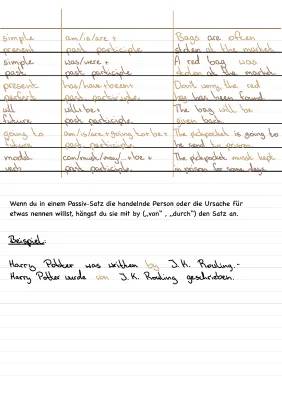 simple am/is/are + Bags are often
present past participle stolen at the market
simple was/were + A red bag was
past past participle stolen at the market
present has/have+been+ Don't worry, the red
perfect past participle bag has been found
will will+be+ The bag will be
future past participle given back
going to am/is/are+going to+be+ The pickpocket is going to
future past participle be send to prison
modal can/must/may/..+be+ The pickpocket must kept
verb past participle in prison for some days
Wenn du in einem Passiv-Satz die handelnde Person oder die Ursache für
etwas nennen willst, hängst du sie mit by („von“ , „durch“) den Satz an.
Beispiel:
Harry Potter was written by J. K. Rowling.-
Harry Potter wurde von J. K. Rowling geschrieben.